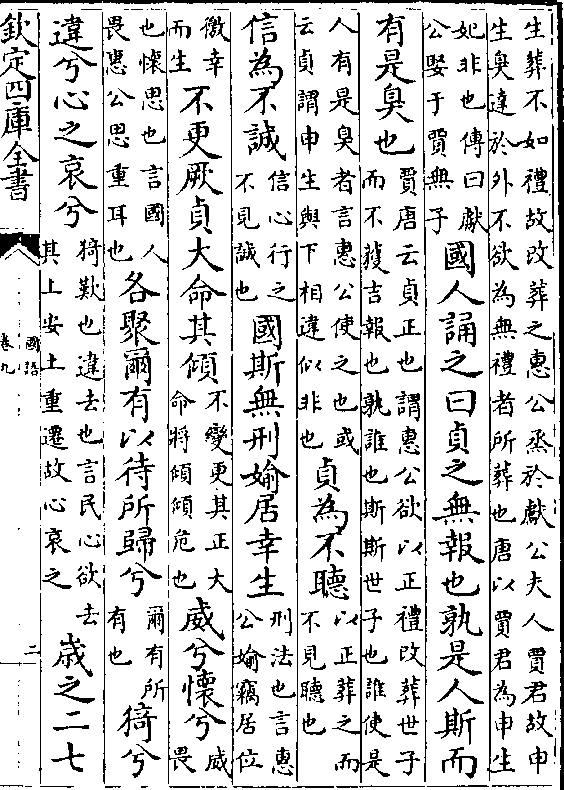 生葬不如禮故改葬之惠公烝於獻公夫人賈君故申
生臭達於外不欲為無禮者所葬也唐以賈君為申生
妃非也傳曰獻
公娶于賈無子
國人誦之曰貞之無報也孰是人斯而
有是臭也
賈唐云貞正也謂惠公欲以正禮改葬世子
而不獲吉報也孰誰也斯斯世子也誰使是
人有是臭者言惠公使之也或
云貞謂申生與下相違似非也
貞為不聽
以正葬之而
不見聽也
信為不誠
信心行之
不見誠也
國斯無刑媮居幸生
刑法也言惠
公媮竊居位
徼幸
而生
不更厥貞大命其傾
不變更其正大
命將傾傾危也
威兮懷兮
威
畏
也懷思也言國人
畏惠公思重耳也
各聚爾有以待所歸兮
爾有所
有也
猗兮
違兮心之哀兮
猗歎也違去也言民心欲去
其上安土重遷故心哀之
歲之二七
欽定四庫全書
國語
卷九
二